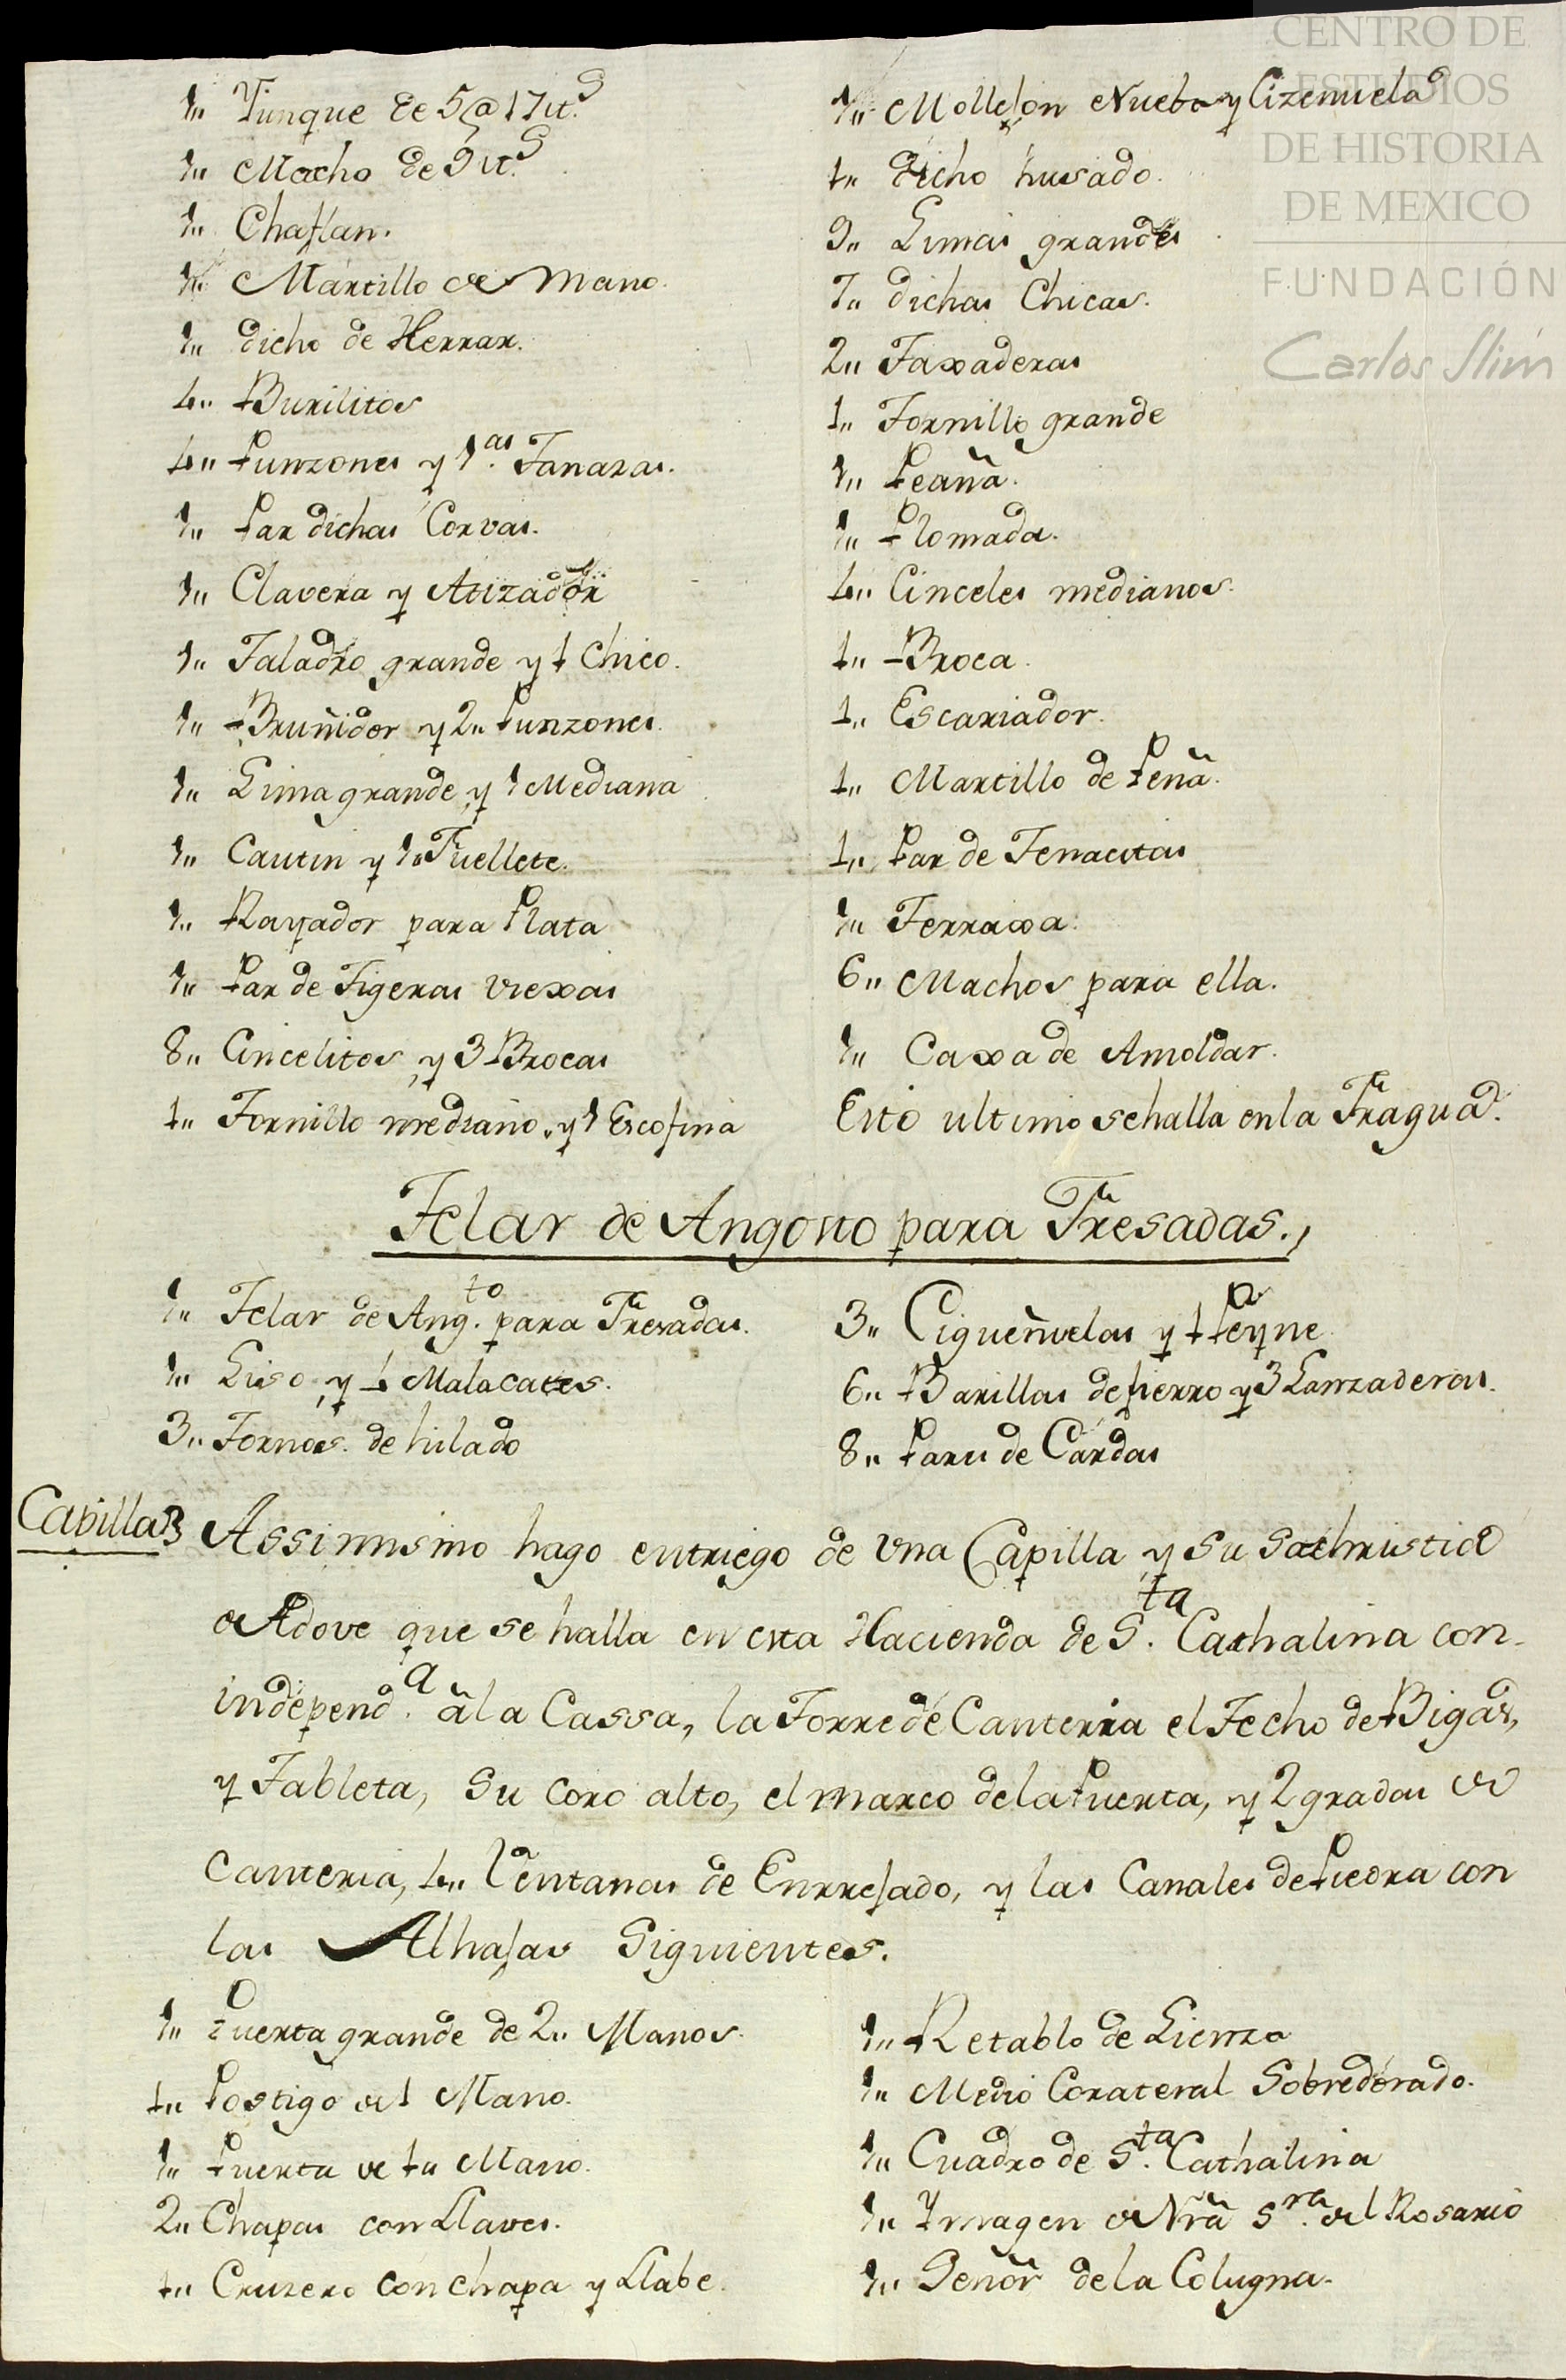 1,, Yunque de 5@ 17 lt.s
1,, Macho de 9 lt.s
1,, Chaflan.
1,, Martillo de mano.
1,, dicho de Herrar.
4,, Burilitos
4,, Punzones y 1.as Tanazas.
1,, Par dichas Corvas.
1,, Clavera y Atizador
1,, Taladro grande y 1 Chico.
1,, Bruñidor y 2,, Punzones.
1,, Lima grande, y 1 Mediana
1,, Cautin y 1,, Fuellete.
1,, Rayador para Plata
1,, Par de Tigeras viexas
8,, Cincelitos, y 3 Brocas
1,, Tornillo mediano, y 1 Escofina
1,, Mollejon Nuebo y Cizenuelas
1,, dicho husado.
9,, Limas grandes
7,, dichas Chicas.
2,, Taxaderas
1,, Tornillo grande
1,, Peaña.
1,, Plomada.
4,, Cinceles medianos.
1,, Broca.
1,, Escariador.
1,, Martillo de Peña.
1,, Par de Tenacitas
1,, Terraxa.
6,, Machos para ella.
1,, Caxa de Amoldar.
Esto ultimo se halla en la Fragua.
Telar de Angosto para Fresadas.,
1,, Telar de Ang.to para Fresadas.
1,, Liso, y 4 Malacates.
3,, Tornos de hilado
3,, Cigueñuelas y 1 Peyne
6,, Barillas de fierro y 3 Lanzaderas.
8,, Pares de Cardas
Capilla
Assimismo hago entriego de una Capilla y su Sachristia
de Adove que se halla en esta Hacienda de S.ta Cathalina con
independ.a â la Cassa, la Torre de Canteria el Techo de Bigas,
y Tableta, Su coro alto, el marco de la Puerta, y 2 gradas de
Canteria, 4,, Ventanas de Enrrejado, y las Canales de Piedra con
las Alhajas Siguientes.
1,, Puerta grande de 2,, Manos.
1,, Postigo de 1 Mano.
1,, Puerta de 1,, Mano.
2,, Chapas con Llaves.
1,, Cruzero con chapa y Llabe.
1,, Retablo de Lienzo
1,, Medio Corateral Sobredorado.
1,, Cuadro de S.ta Cathalina
1,, Ymagen de Nrã S.ra del Rosario
1,, Señor de la Colugna.
CENTRO DE
ESTUDIOS
DE HISTORIA
DE MEXICO
FUNDACIÓN
Carlos Slim